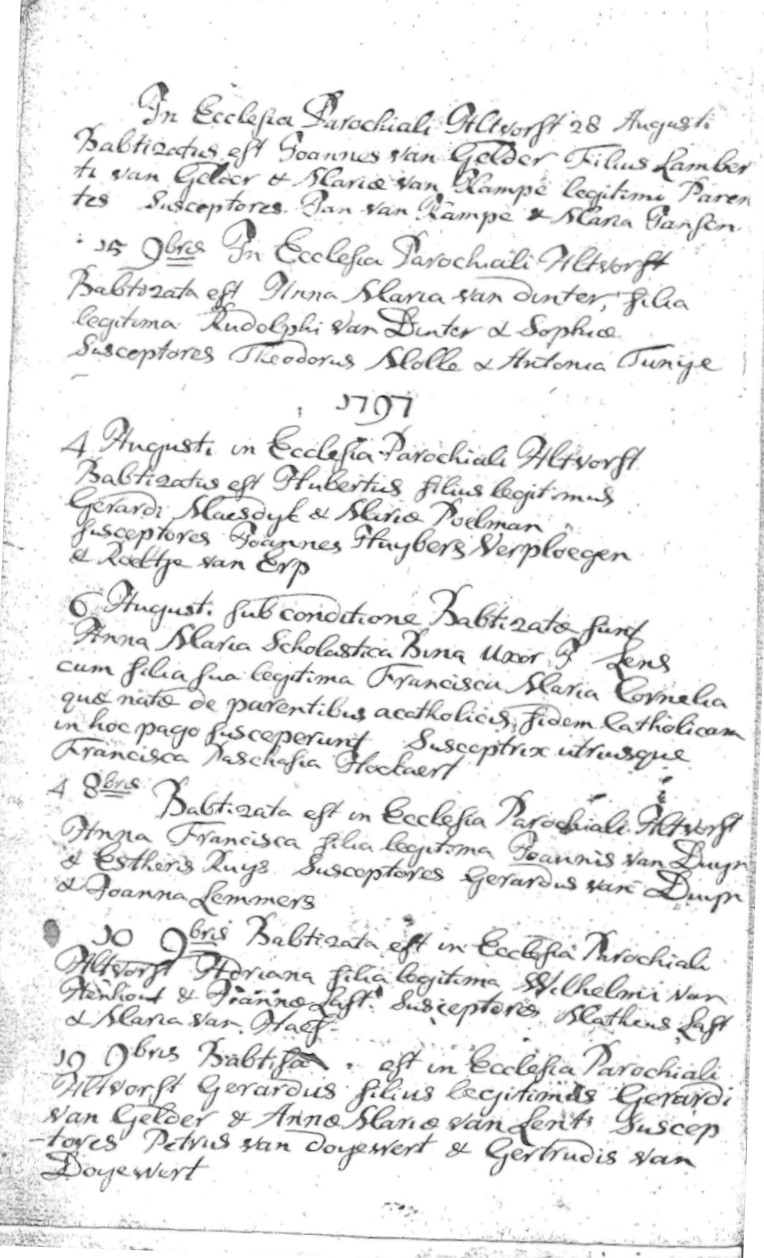 In Ecclesia Parochiali Altvorst 28 Augusti
Babtizatus est Joannes van Gelder Filius Lamber
ti van Gelder & Mariæ van Kampe legitimi Paren
tes Susceptores Jan van Kampe & Maria Jansen
15 9bris In Ecclesia Parochiali Altvorst
Babtizata est Anna Maria van dinter, filia
legitima Rudolphi van Dinter & Sophiæ
Susceptores Theodorus Molle & Antonia Tunise
1797
4 Augusti in Ecclesia Parochiali Altvorst
Babtizatus est Hubertus filius legitimus
Gerardi Maesdyk & Mariæ Poelman
susceptores Joannes Huybers Verploegen
& Roeltje van Erp
6 Augusti sub conditione Babtizatæ sunt
Anna Maria Scholastica Bina Uxor J Lens
cum filia sua legitima Francisca Maria Cornelia
quæ natæ de parentibus acatholicis, fidem Catholicam
in hoc pago susceperunt Susceptrix utriusque
Francisca Paschasia Hockaert
4 8bris Babtizata est in Ecclesia Parochiali Altvorst
Anna Francisca filia legitima Joannis van Duyn
& Estheris Kuys Susceptores Gerardus van Duyn
& Joanna Lemmers
10 9bris Babtizata est in Ecclesia Parochiali
Altvorst Adriana filia legitima Wilhelmi van
& Joannæ Last Susceptores Matheus Last
& Maria van Haef
19 9bris est in Ecclesia Parochiali
Altvorst Gerardus filius legitimus Gerardi
van Gelder & Annæ Mariæ van Lent Suscep
tores Petrus van Doyewert & Gertrudis van
Doyewert